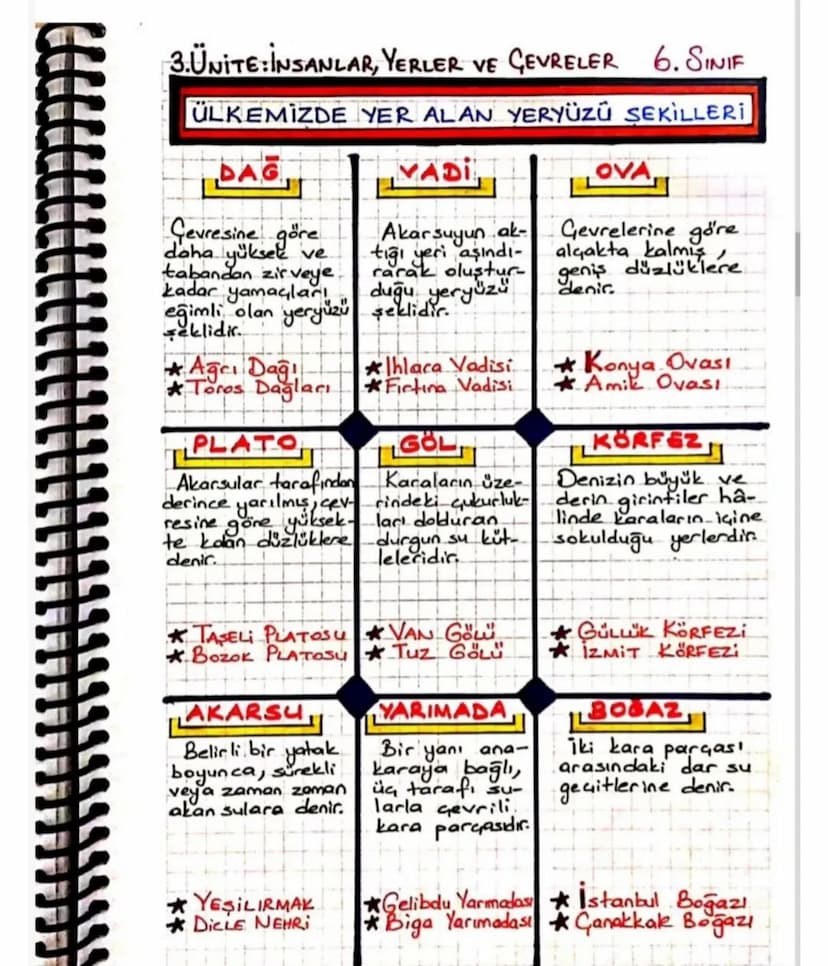 3.ÜNİTE:İNSANLAR, YERLER VE ÇEVRELER 6. SINIF
ÜLKEMİZDE YER ALAN YERYÜZÜ ŞEKİLLERİ
DAĞ
Çevresine göre
daha yüksek ve
tabandan zirveye
kadar yamaçları
eğimli olan yeryüzü
şeklidir.
★ Ağrı Dağı
★ Toros Dağları
VADİ
Akarsuyun ak-
tığı yeri aşındı-
rarak oluştur-
duğu yeryüzü
şeklidir.
★ Ihlara Vadisi
★ Fırtına Vadisi
OVA
Çevrelerine göre
alçakta kalmış,
geniş düzlüklere
denir.
★ Konya Ovası
★ Amik Ovası
PLATO
Akarsular tarafından
derince yarılmış, çev-
resine göre yüksek-
te kalan düzlüklere
denir.
★ TAŞELİ PLATOSU
★ BOZOK PLATOSU
GÖL
Karaların üze-
rindeki çukurluk-
ları dolduran
durgun su küt-
leleridir.
★ VAN GÖLÜ
★ TUZ GÖLÜ
KÖRFEZ
Denizin büyük ve
derin girintiler hâ-
linde karaların içine
sokulduğu yerlerdir.
★ GÜLLÜK KÖRFEZİ
★ İZMİT KÖRFEZİ
AKARSU
Belirli bir yatak
boyunca, sürekli
veya zaman zaman
akan sulara denir.
★ YEŞİLIRMAK
★ DİCLE NEHRİ
YARIMADA
Bir yanı ana-
karaya bağlı,
üç tarafı su-
larla çevrili
kara parçasıdır.
★ Gelibolu Yarımadası
★ Biga Yarımadası
BOĞAZ
İki kara parçası
arasındaki dar su
geçitlerine denir.
★ İstanbul Boğazı
★ Çanakkale Boğazı